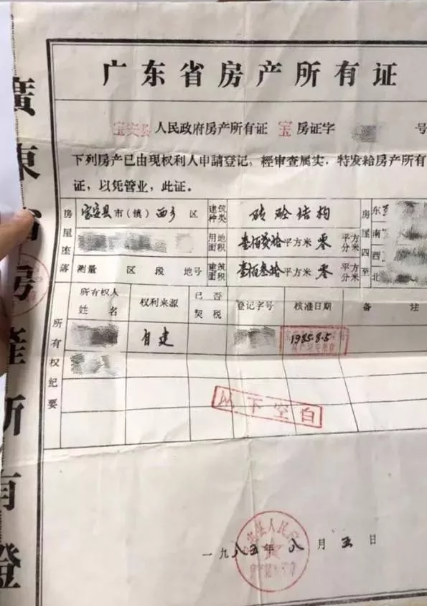 广东省房产所有证
宝安县人民政府房产所有证 宝房证字 号
下列房产已由现权利人申請登记,經审查属实,特发給房产所有
证,以凭管业,此证。
房屋座落 宝安县市(镇)西乡区 建筑种类 砖砼结构 房屋四至 东 南 西 北
用地面积 平方米零平方分米
测量 区 段 地号 建筑面积 平方米零平方分米
所有权纪要 所有权人姓名 权利来源 已否契税 登记字号 核准日期 备 注
自建 1985.8.5
以下空白
一九八五年八月五日
廣東省房產所有證